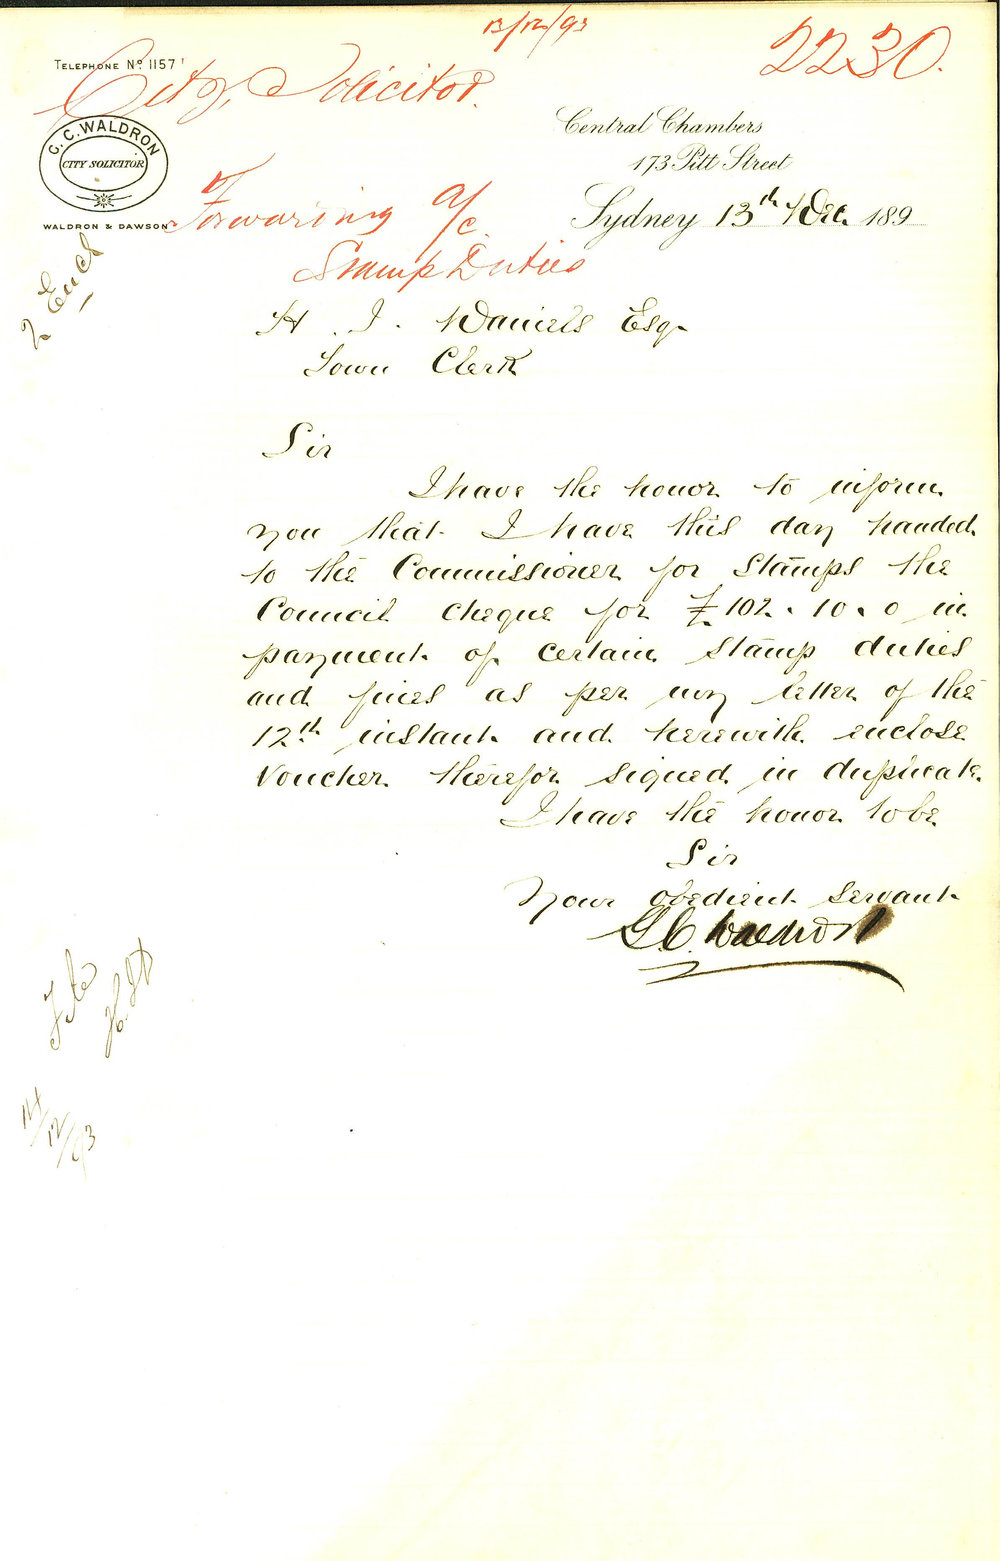 13/12/93
2230.
TELEPHONE No. 1157
City Solicitor.
G. C. WALDRON
CITY SOLICITOR
WALDRON & DAWSON
Central Chambers
173 Pitt Street
Sydney 13th Dec. 189
Forwarding a/c.
Stamp Duties
2 Encls
H. J. Daniels Esq.
Town Clerk
Sir
I have the honor to inform
you that I have this day handed
to the Commissioner for Stamps the
Council cheque for £102.10.0 in
payment of certain Stamp duties
and fines as per my letter of the
12th instant and herewith enclose
Voucher therefor signed in duplicate.
I have the honor to be
Sir
Your obedient Servant
G. C. Waldron
File
14/12/93